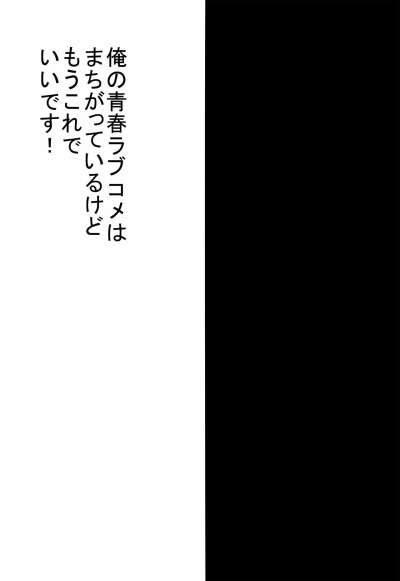 俺の青春ラブコメは
まちがっているけど
もうこれで
いいです！